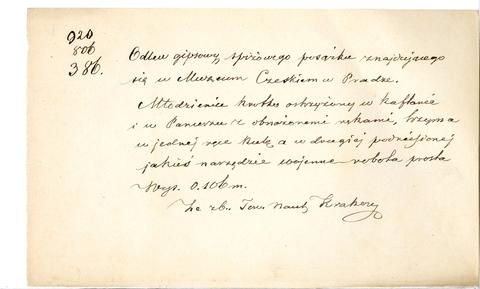 920
806
386.
Odlew gipsowy spiżowego posążku znajdującego
się w Muzeum Czeskiem w Pradze.
Młodzieniec krótko ostrzyżony w kaftanie
i w Pancerzu z obnażonemi rękami, trzyma
w jednej ręce kulę, a w drugiej podniesionej
jakieś narzędzie wojenne robota prosta
Wys. 0.106 m.
Ze zb. Tow. Nauk. Krakow.